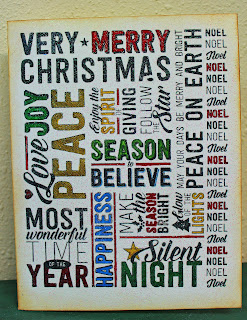 VERY MERRY
CHRISTMAS
Love JOY
PEACE
Enjoy the
SPIRIT
GIVING
FOLLOW
the STAR
MAY YOUR DAYS BE MERRY AND BRIGHT
PEACE ON EARTH
SEASON
to
BELIEVE
MOST
wonderful
TIME
OF THE
YEAR
HAPPINESS
MAKE
the
SEASON
BRIGHT
LIGHTS
Silent
NIGHT
NOEL
NOEL
Noel
NOEL
NOEL
NOEL
Noel
NOEL
NOEL
NOEL
Noel
NOEL
NOEL
NOEL
Noel
NOEL
NOEL
NOEL
Noel
NOEL
NOEL
NOEL
Noel